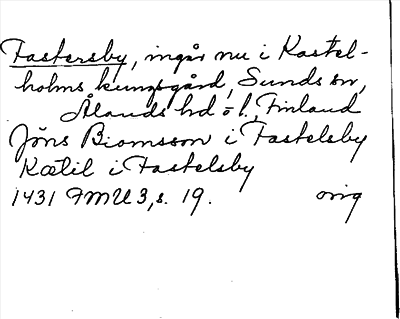 Fastersby, ingår nu i Kastel-
holms kungsgård, Sunds sn,
Ålands hd o l., Finland
Jöns Biornsson i Fastelsby
Kætil i Fastelsby
1431 FMU 3, s. 19. orig